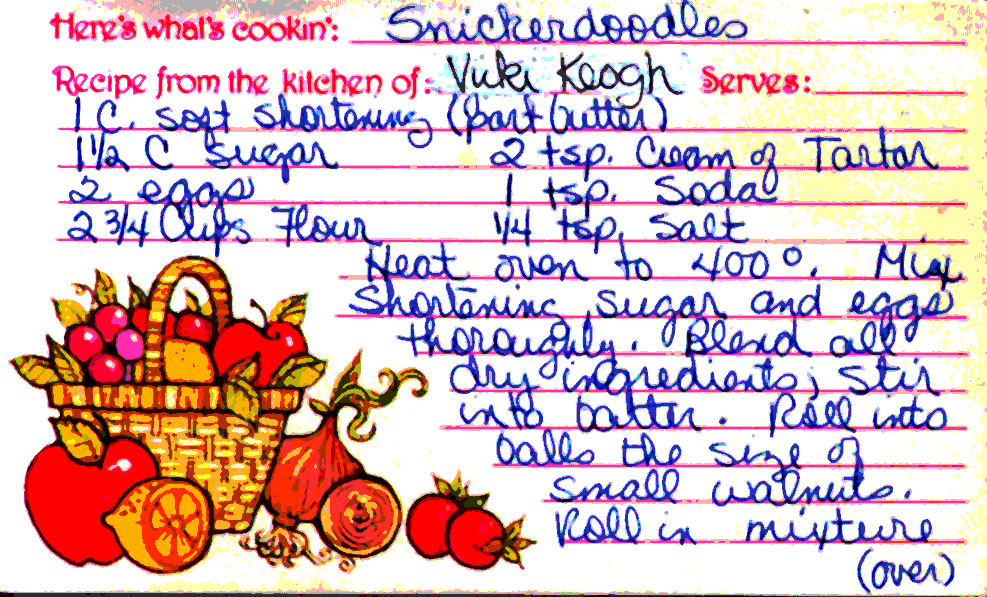 Here's what's cookin': Snickerdoodles
Recipe from the kitchen of: Vicki Keogh Serves:
1 C. soft shortening (part butter)
1 1/2 C sugar 2 tsp. Cream of Tartar
2 eggs 1 tsp. Soda
2 3/4 Cups Flour 1/4 tsp. Salt
Heat oven to 400°. Mix
shortening, sugar and eggs
thoroughly. Blend all
dry ingredients; stir
into batter. Roll into
balls the size of
small walnuts.
Roll in mixture
(over)